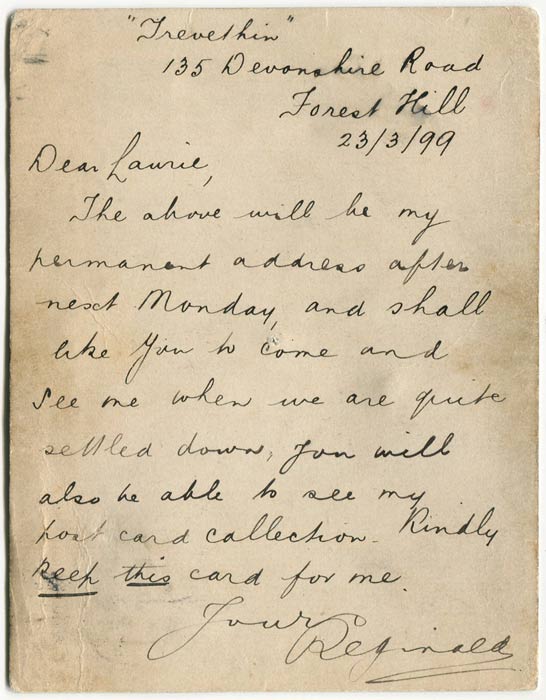 "Trevethin"
135 Devonshire Road
Forest Hill
23/3/99
Dear Laurie,
The above will be my
permanent address after
next Monday, and shall
like you to come and
see me when we are quite
settled down, you will
also be able to see my
post card collection. Kindly
keep this card for me.
Your
Reginald